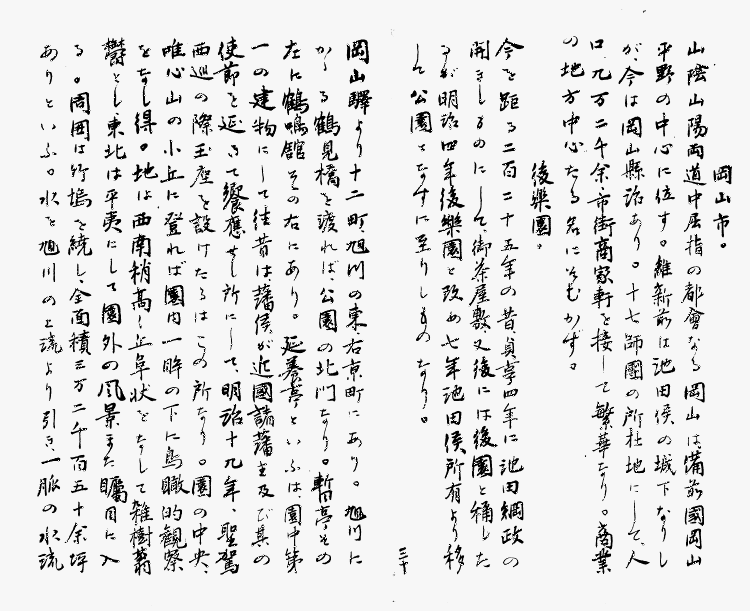 岡山市。
山陰山陽両道中屈指の都會なる岡山は備前國岡山
平野の中心に位す。維新前は池田侯の城下なりし
が、今は岡山縣治あり。十七師團の所在地にして、人
口九万二千余、市街商家軒を接して繁華なり。商業
の地方中心たる名にそむかず。
後樂園。
今を距る二百二十五年の昔貞享四年に池田綱政の
開きしものにして御茶屋敷又後には後園と稱した
るが明治四年後樂園と改め七年池田侯所有より移
して公園となすに至りしものなり。
三十
岡山驛より十二町旭川の東、右京町にあり。旭川に
かゝる鶴見橋を渡れば、公園の北門なり。暫亭その
左に鶴鳴館その右にあり。延養亭といふは、園中第
一の建物にして往昔は藩侯が近國諸藩主及び其の
使節を延きて饗應せし所にして、明治十九年、聖駕
西巡の際玉座を設けたるはこの所なり。園の中央、
唯心山の小丘に登れば園内一眸の下に鳥瞰的観察
をなし得。地は西南稍高く丘阜状をなして雑樹蓊
鬱とし東北は平夷にして園外の風景また矚目に入
る。周囲は竹塢を繞し、全面積三万二千百五十余坪
ありといふ。水を旭川の上流より引き一脈の水流